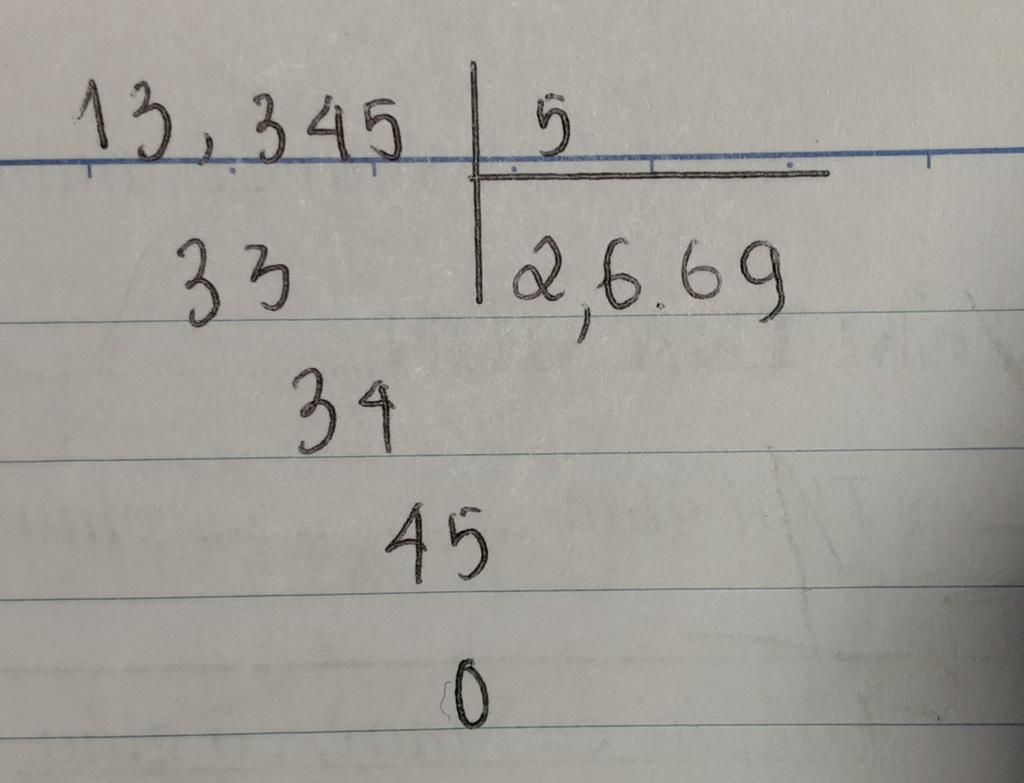 13,345 5
33 2,6.69
34
45
0